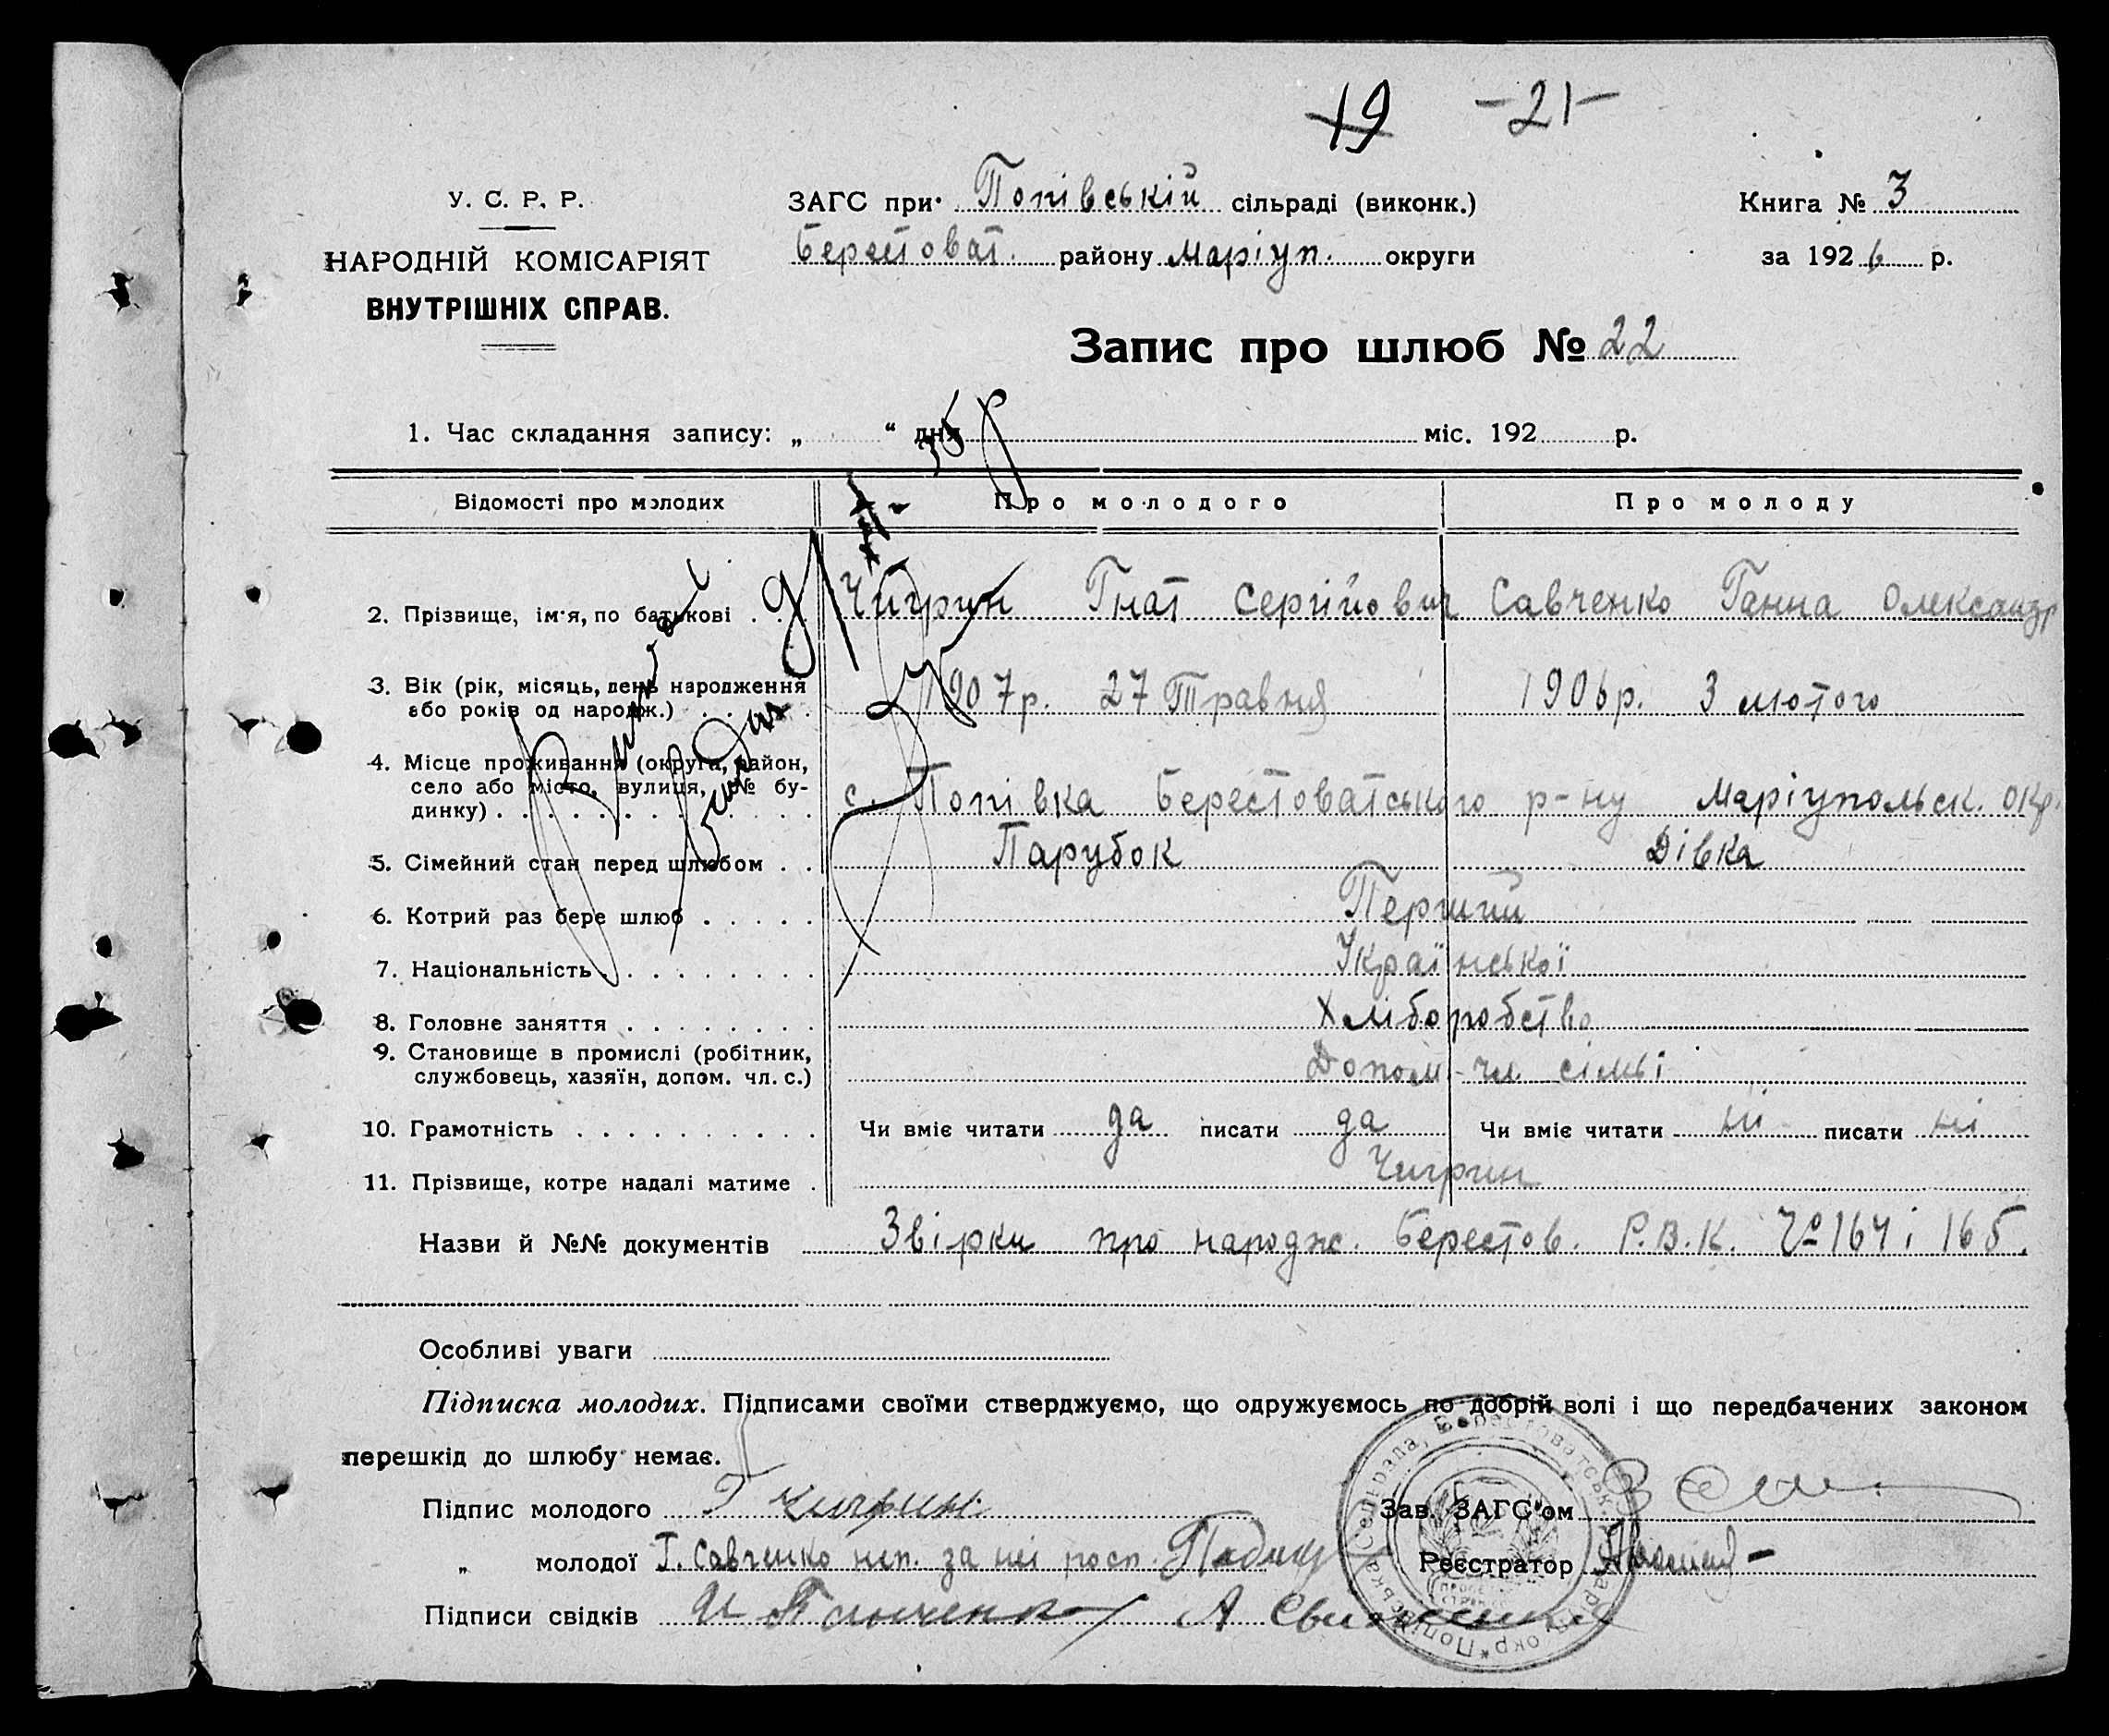 19 -21-
У. С. Р. Р.
НАРОДНІЙ КОМІСАРІЯТ
ВНУТРІШНІХ СПРАВ.
ЗАГС при Попівській сільраді (виконк.)
Берестоват. району Маріуп. округи
Книга № 3
за 1926 р.
Запис про шлюб № 22
1. Час складання запису: „ “ дня міс. 192 р.
Відомості про молодих Про молодого Про молоду
2. Прізвище, ім'я, по батькові . . . Чигрин Гнат Сергійович Савченко Ганна Олександр
3. Вік (рік, місяць, день народження
або років од народж.) . . . . . 1907р. 27 Травня 1906р. 3 лютого
4. Місце проживання (округа, район,
село або місто, вулиця, № бу-
динку) . . . . . . . . . . . . . с. Попівка Берестоватського р-ну Маріупольск. окр.
5. Сімейний стан перед шлюбом . . Парубок Дівка
6. Котрий раз бере шлюб . . . . . Перший
7. Національність . . . . . . . . . Української
8. Головне заняття . . . . . . . . Хліборобство
9. Становище в промислі (робітник,
службовець, хазяїн, допом. чл. с.) Допом. чл сімьї
10. Грамотність . . . . . . . . . . Чи вміє читати да писати да Чи вміє читати ні писати ні
11. Прізвище, котре надалі матиме . Чигрин
Назви й №№ документів Звірки про народж. Берестов. Р.В.К. № 164 і 165.
Особливі уваги
Підписка молодих. Підписами своїми стверджуємо, що одружуємось по добрій волі і що передбачених законом
перешкід до шлюбу немає.
Підпис молодого Г Чигрин.
Зав. ЗАГС'ом
„ молодої Г. Савченко неп. за неї росп.
Реєстратор
Підписи свідків